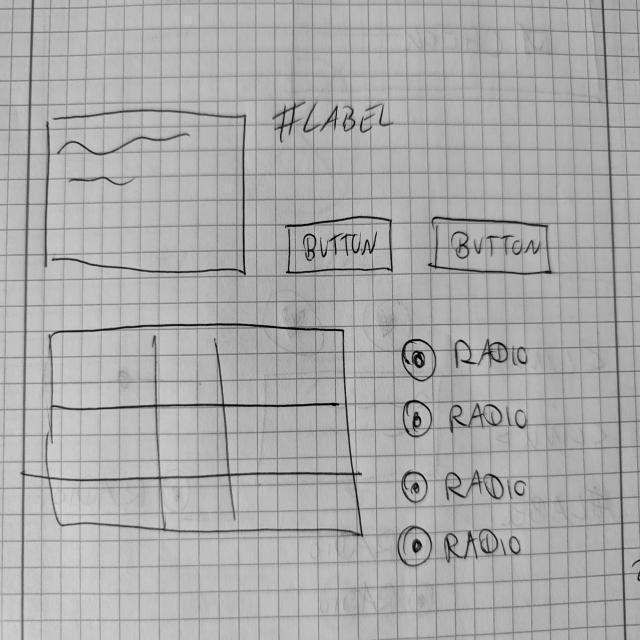 #LABEL
BUTTON BUTTON
RADIO
RADIO
RADIO
RADIO